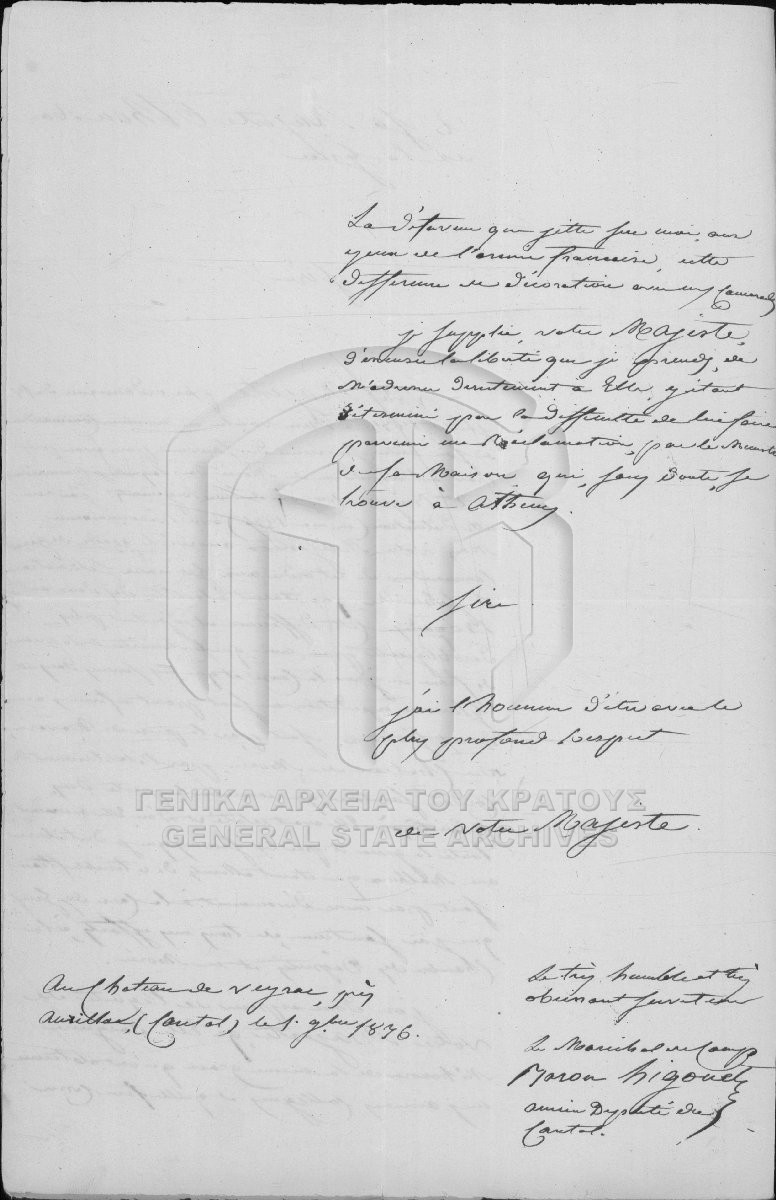 La défaveur que jette sur moi, aux
yeux de l'armée francaise, cette
difference de décoration avec mes Camarades
je supplie, votre Majesté,
d'excuser la liberté que je prends, de
m'adresser directement a Elle, y étant
déterminé par la difficulté de lui faire
parvenir ma Réclamation, par le Ministre
de sa Maison qui, sans doute, se
trouve à Athenes.
Sire
j'ai l'honneur d'etre avec le
plus profond respect
de votre Majesté.
ΓΕΝΙΚΑ ΑΡΧΕΙΑ ΤΟΥ ΚΡΑΤΟΥΣ
GENERAL STATE ARCHIVES
Au Chateau de Veyrac, près
aurillac, (Cantal) le 1. 9bre 1836.
Le très humble et très
obeissant serviteur
Le Marechal de Camp
Baron Higonet
ancien Député du
Cantal.